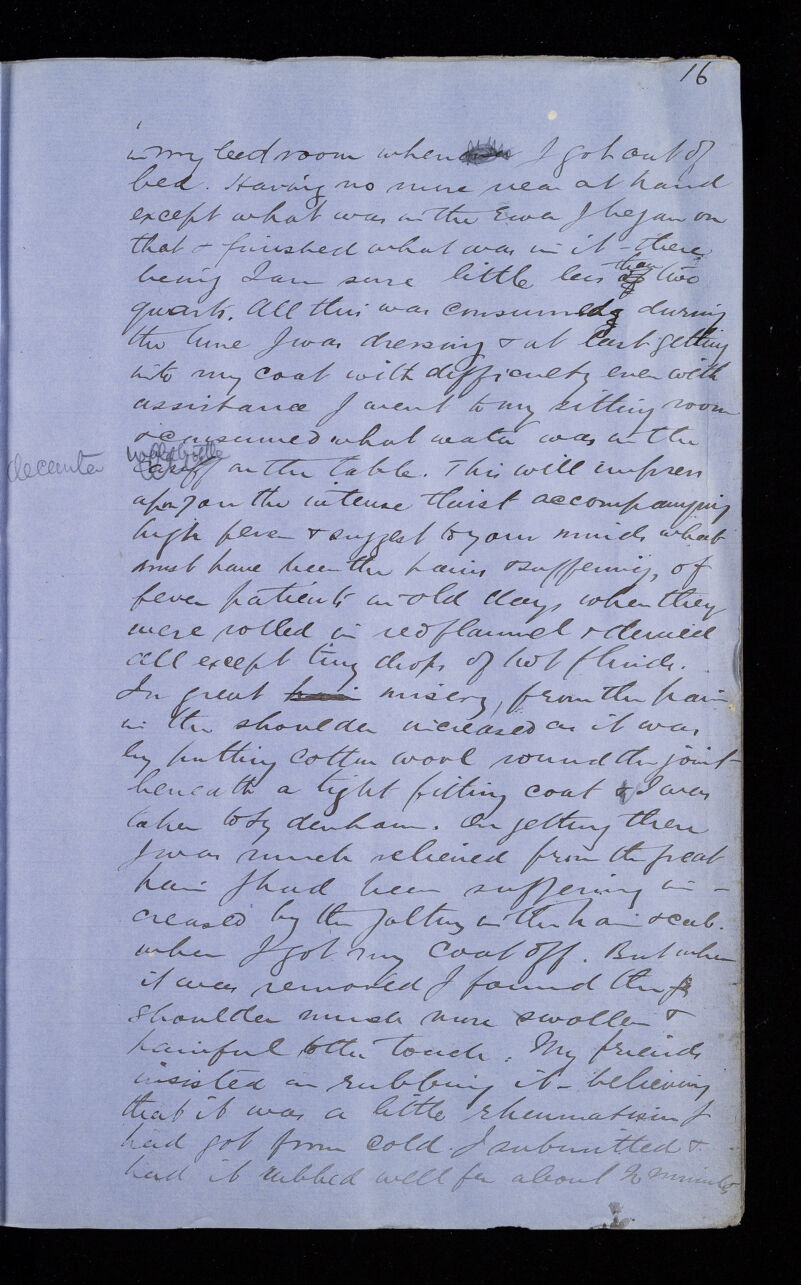 16
in my bed room when I got out of
bed. Having no more near at hand
except what was in the Ewer I began on
that & finished what was in it - there
being I am sure little less than two
quarts. All this was consumed during
the time I was dressing & at last getting
into my coat with difficulty even with
assistance I went to my sitting room
& consumed what water was in the
decanter water bottle
on the table. This will impress
upon you the intense thirst accompanying
high fever & suggest to your minds what
must have been the pains & sufferings of
fever patients in old days when they
were rolled in red flannel & denied
all except tiny drops of hot fluids.
In great pain misery, from the pain
in the shoulder increased as it was
by putting cotton wool round the joint
beneath a tight fitting coat I was
taken to Sydenham. On getting there
I was much relieved from the great
pain I had been suffering in-
creased by the jolting in the train & cab.
when I got my coat off. But when
it was removed I found the
shoulder much more swollen &
painful to the touch. My friends
insisted on rubbing it - believing
that it was a little rheumatism I
had got from cold. I submitted &
had it rubbed well for about minutes